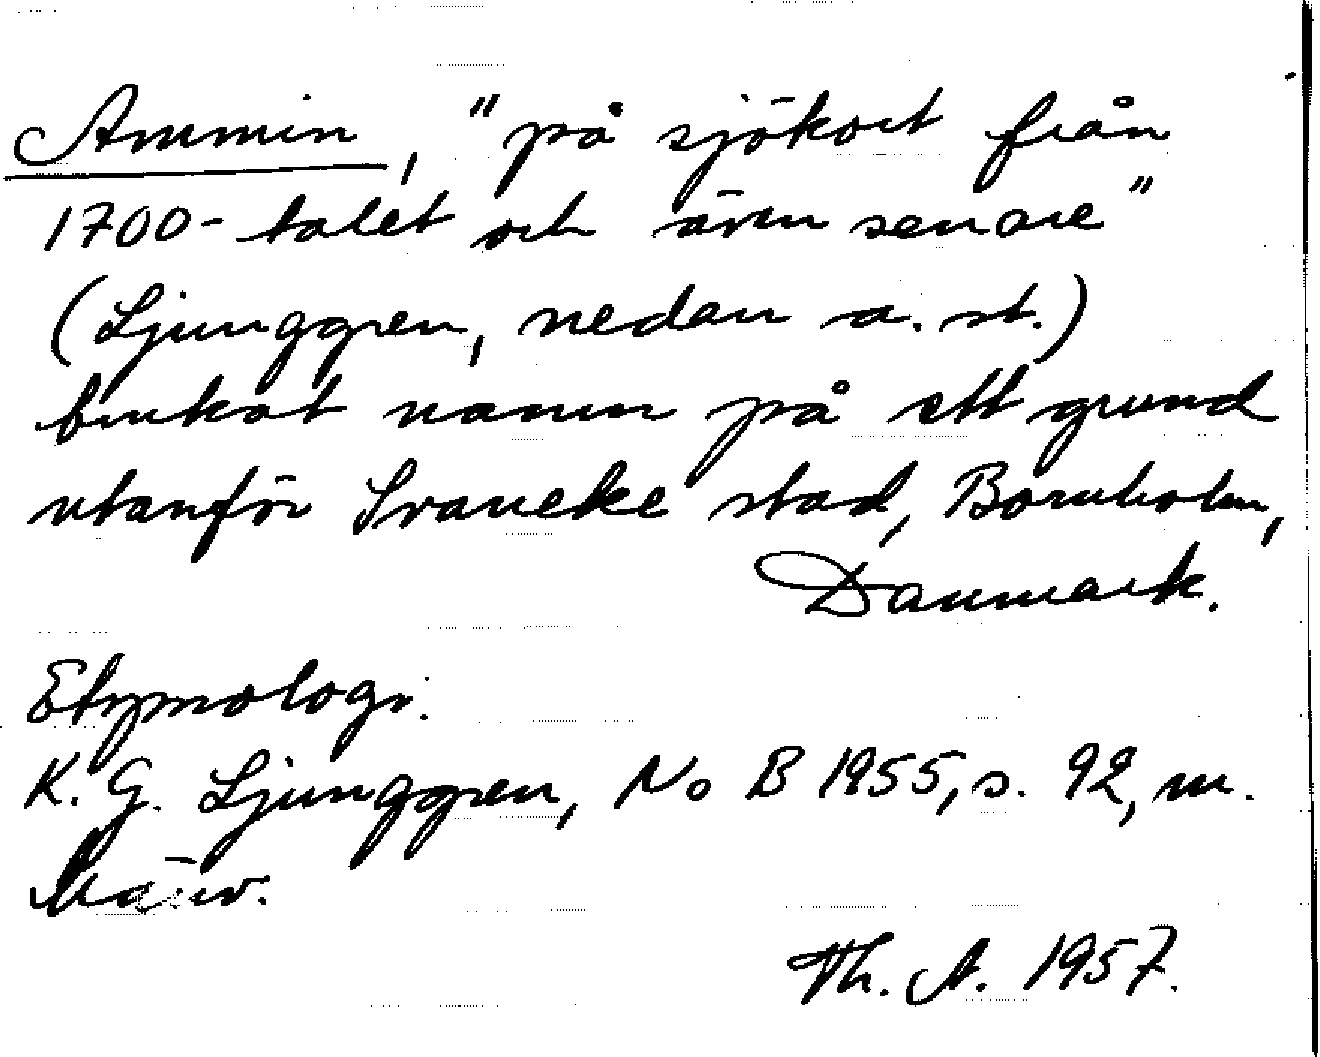 Ammin, "på sjökort från
1700-talet och även senare"
(Ljunggren, nedan a. st.)
brukat namn på ett grund
utanför Svaneke stad, Bornholm,
Danmark.
Etymologi:
K. G. Ljunggren, No B 1955, s. 92, m.
hänv.
Th. A. 1957.